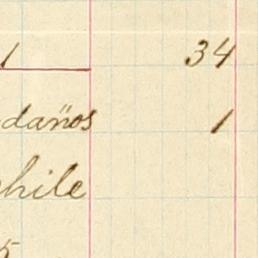 1 34
daños 1
hile
5